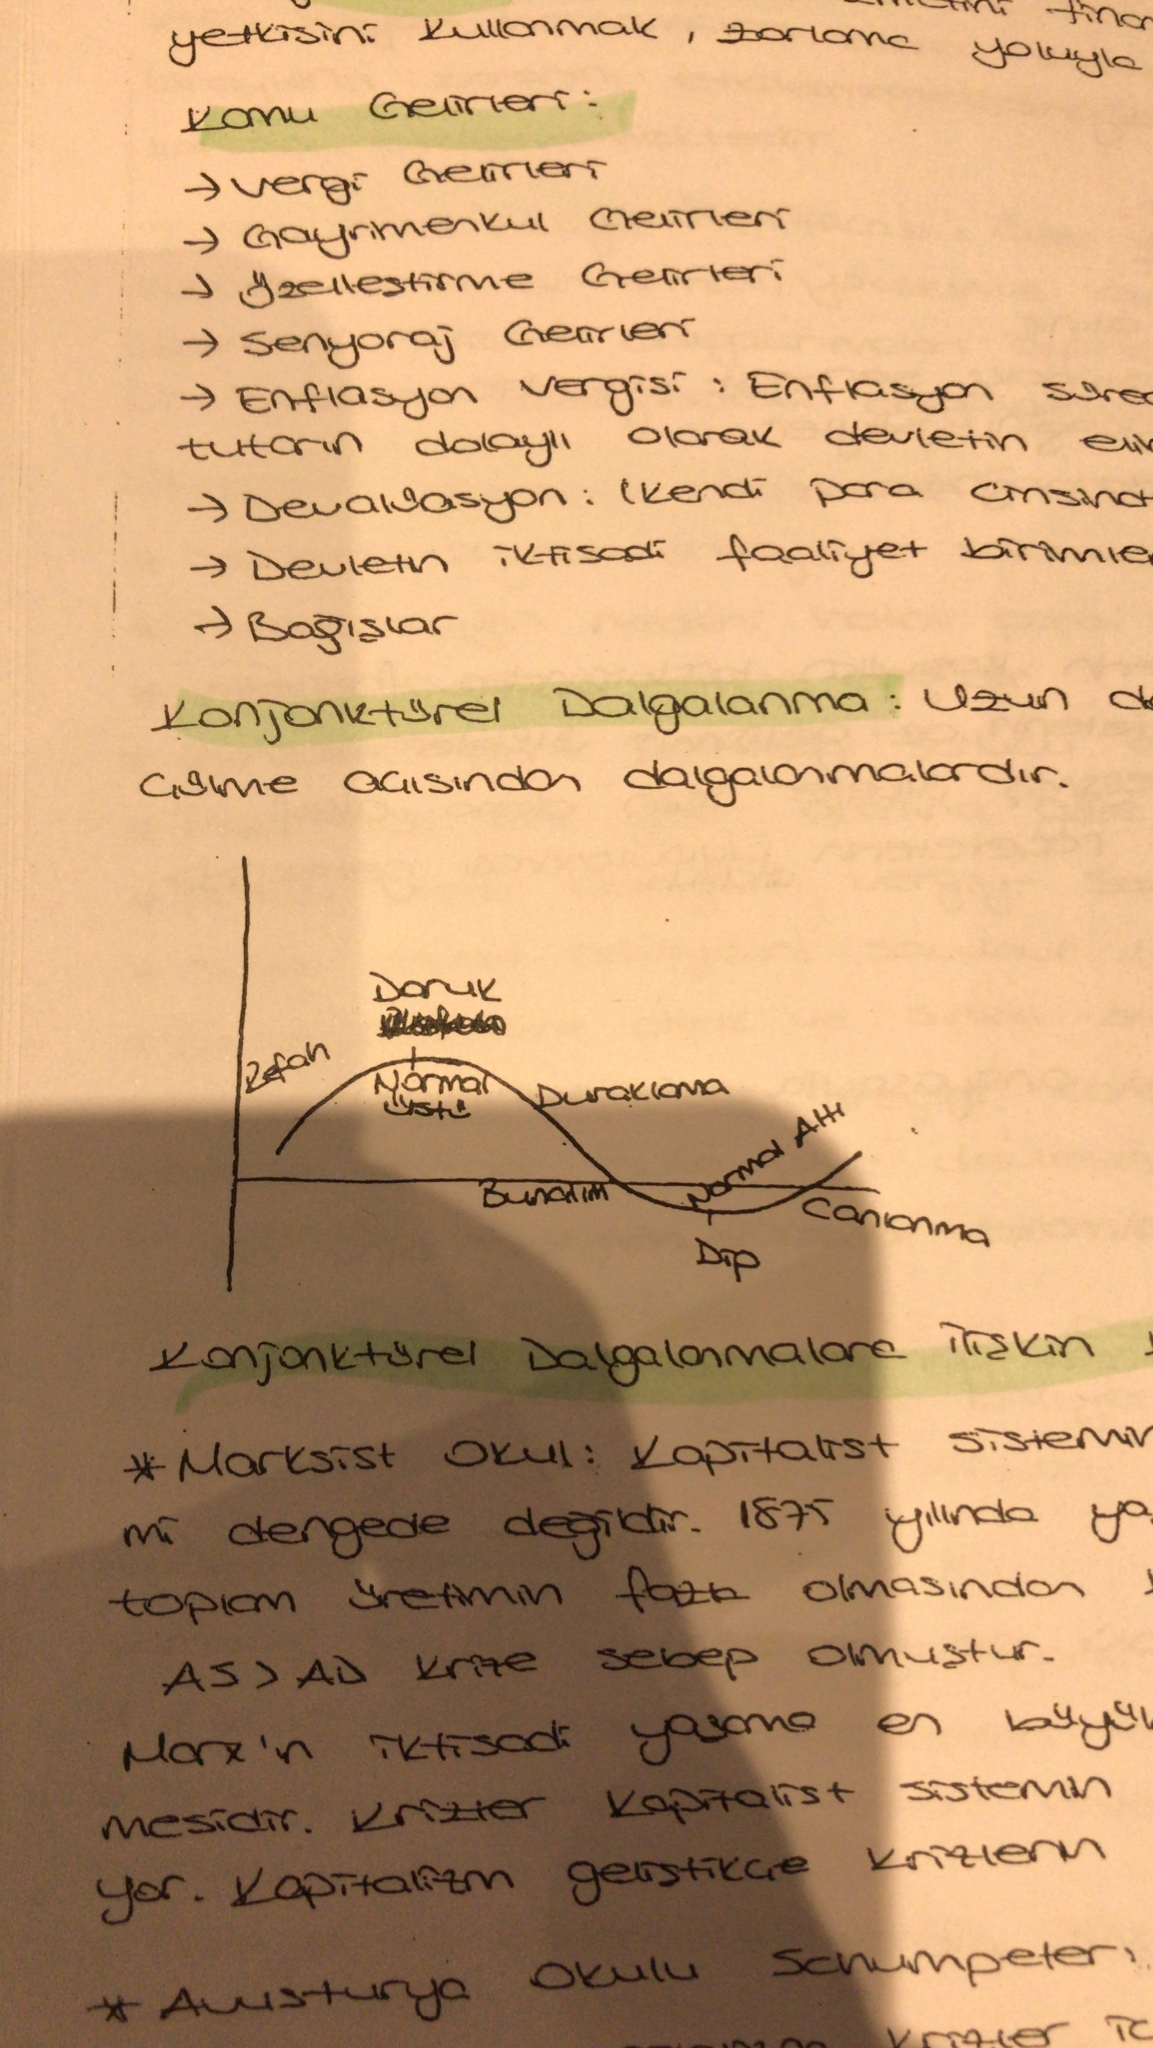 yetkisini kullanmak, zorlama yoluyla
Kamu Gelirleri:
→ Vergi Gelirleri
→ Gayrimenkul Gelirleri
→ Özelleştirme Gelirleri
→ Senyoraj Gelirleri
→ Enflasyon vergisi: Enflasyon
tutarın dolaylı olarak devletin
→ Devalüasyon: (Kendi para
→ Devletin iktisadi faaliyet
→ Bağışlar
Konjonktürel Dalgalanma: Uzun
açısından dalgalanmalardır.
Doruk
Refah
Normal
üstü
Duraklama
Normal Altı
Bunalım
Canlanma
Dip
Konjonktürel Dalgalanmalara İlişkin
* Marksist Okul: Kapitalist
mi dengede değildir. 1875 yılında
toplam üretimin fazla olmasından
AS > AD krize sebep olmuştur.
Marx'ın iktisadi yaşama en
mesidir. Krizler kapitalist sistemin
yor. Kapitalizm geliştikçe krizlerin
* Avusturya Okulu Schumpeter:
krizler